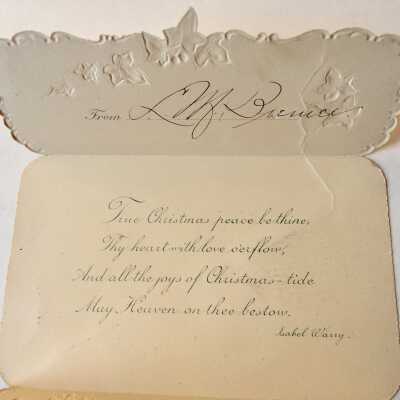 From L. M. Bremer
True Christmas peace be thine,
Thy heart with love o'erflow,
And all the joys of Christmas-tide
May Heaven on thee bestow.
Isabel Warry.